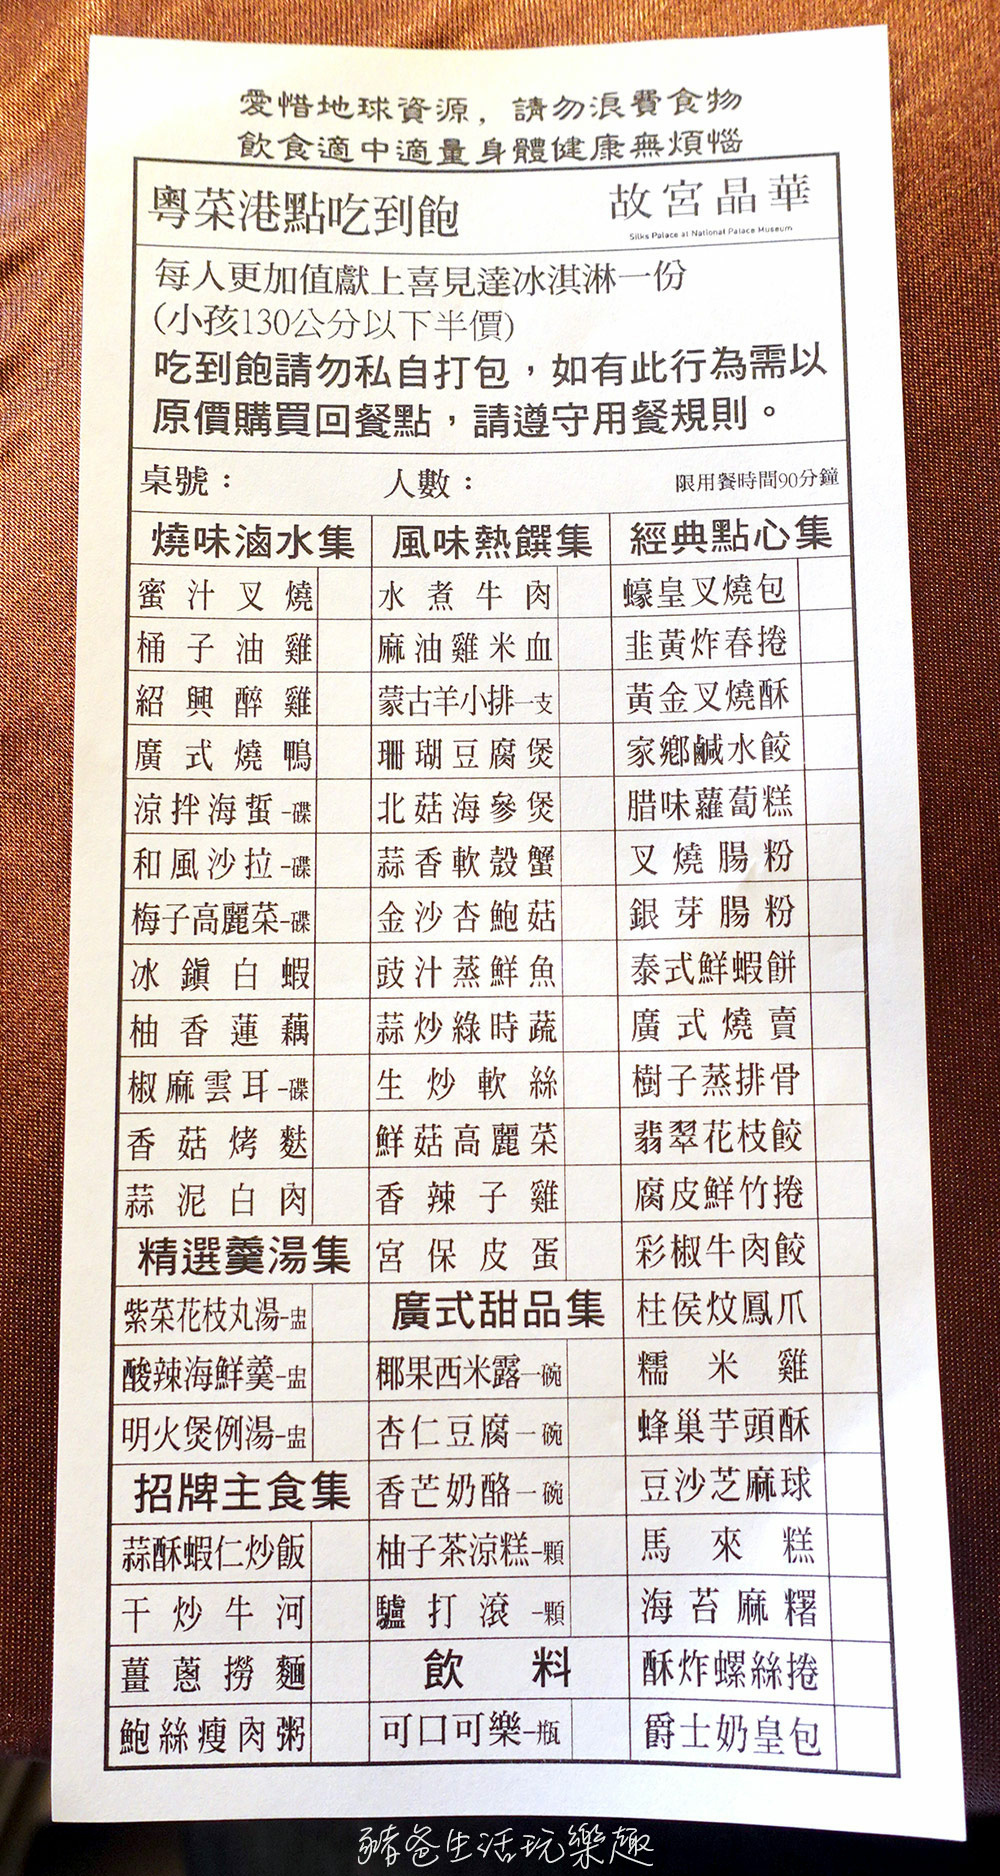 愛惜地球資源，請勿浪費食物
飲食適中適量身體健康無煩惱
粵菜港點吃到飽
故宮晶華
Silks Palace at National Palace Museum
每人更加值獻上喜見達冰淇淋一份
(小孩130公分以下半價)
吃到飽請勿私自打包，如有此行為需以
原價購買回餐點，請遵守用餐規則。
桌號：
人數：
限用餐時間90分鐘
燒味滷水集
蜜汁叉燒
桶子油雞
紹興醉雞
廣式燒鴨
涼拌海蜇-碟
和風沙拉-碟
梅子高麗菜-碟
冰鎮白蝦
柚香蓮藕
椒麻雲耳-碟
香菇烤麩
蒜泥白肉
精選羹湯集
紫菜花枝丸湯-盅
酸辣海鮮羹-盅
明火煲例湯-盅
招牌主食集
蒜酥蝦仁炒飯
干炒牛河
薑蔥撈麵
鮑絲瘦肉粥
風味熱饌集
水煮牛肉
麻油雞米血
蒙古羊小排一支
珊瑚豆腐煲
北菇海參煲
蒜香軟殼蟹
金沙杏鮑菇
豉汁蒸鮮魚
蒜炒綠時蔬
生炒軟絲
鮮菇高麗菜
香辣子雞
宮保皮蛋
廣式甜品集
椰果西米露一碗
杏仁豆腐一碗
香芒奶酪一碗
柚子茶涼糕-顆
驢打滾-顆
飲料
可口可樂-瓶
經典點心集
蠔皇叉燒包
韭黃炸春捲
黃金叉燒酥
家鄉鹹水餃
腊味蘿蔔糕
叉燒腸粉
銀芽腸粉
泰式鮮蝦餅
廣式燒賣
樹子蒸排骨
翡翠花枝餃
腐皮鮮竹捲
彩椒牛肉餃
柱侯炆鳳爪
糯米雞
蜂巢芋頭酥
豆沙芝麻球
馬來糕
海苔麻糬
酥炸螺絲捲
爵士奶皇包
豬爸生活玩樂趣